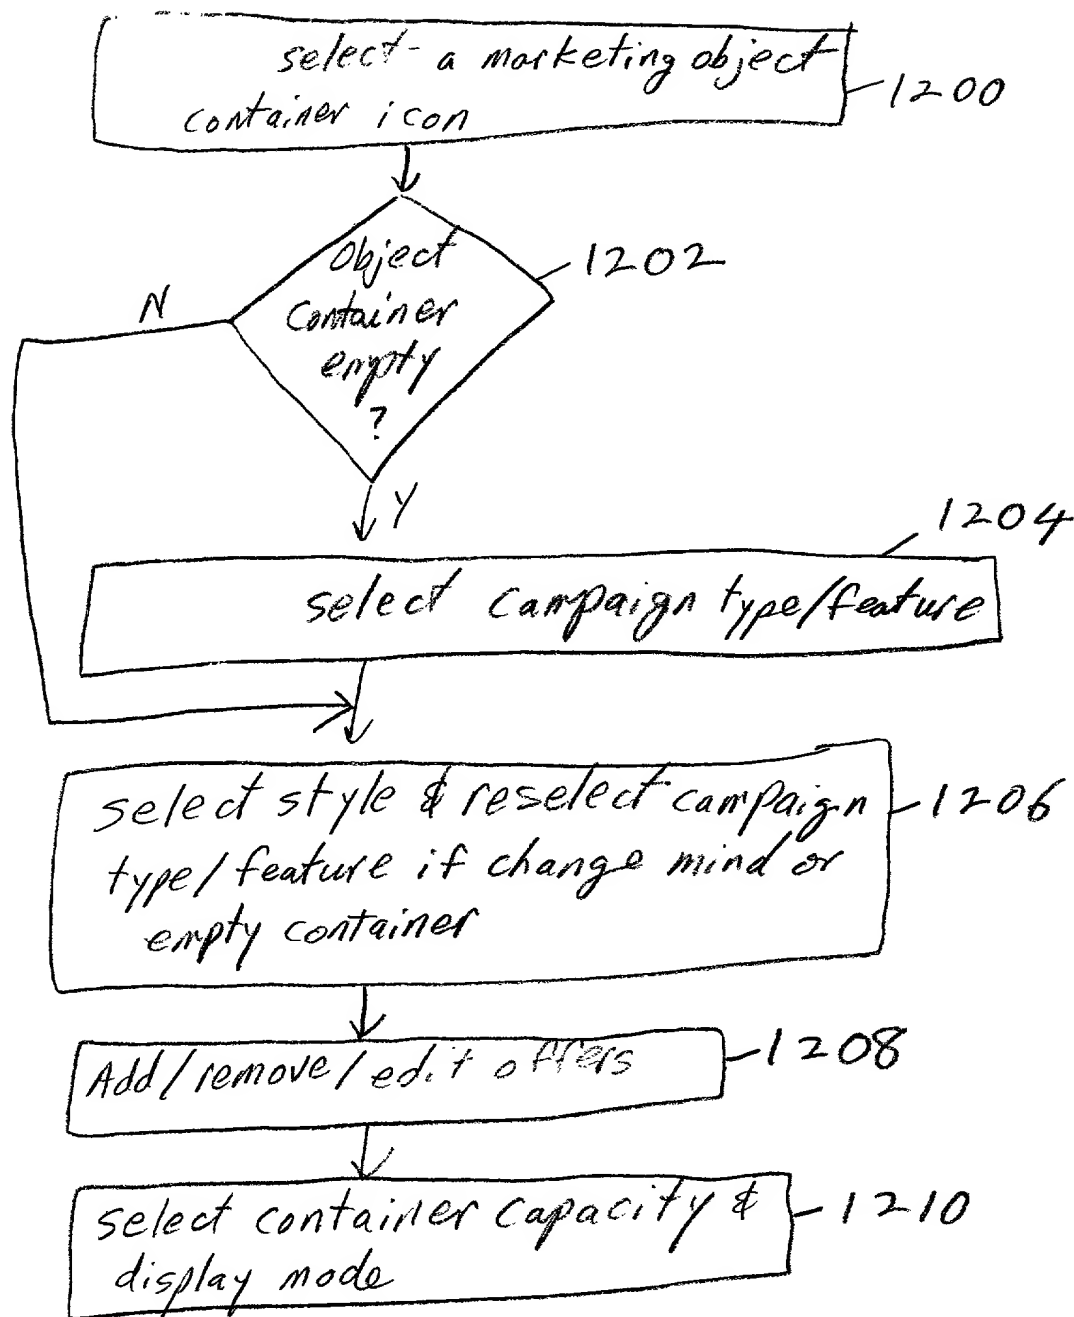 select a marketing object
container icon
1200
Object
Container
empty
?
1202
N
Y
1204
select campaign type/feature
select style & reselect campaign
type/feature if change mind or
empty container
1206
Add/remove/edit offers
1208
select container capacity &
display mode
1210